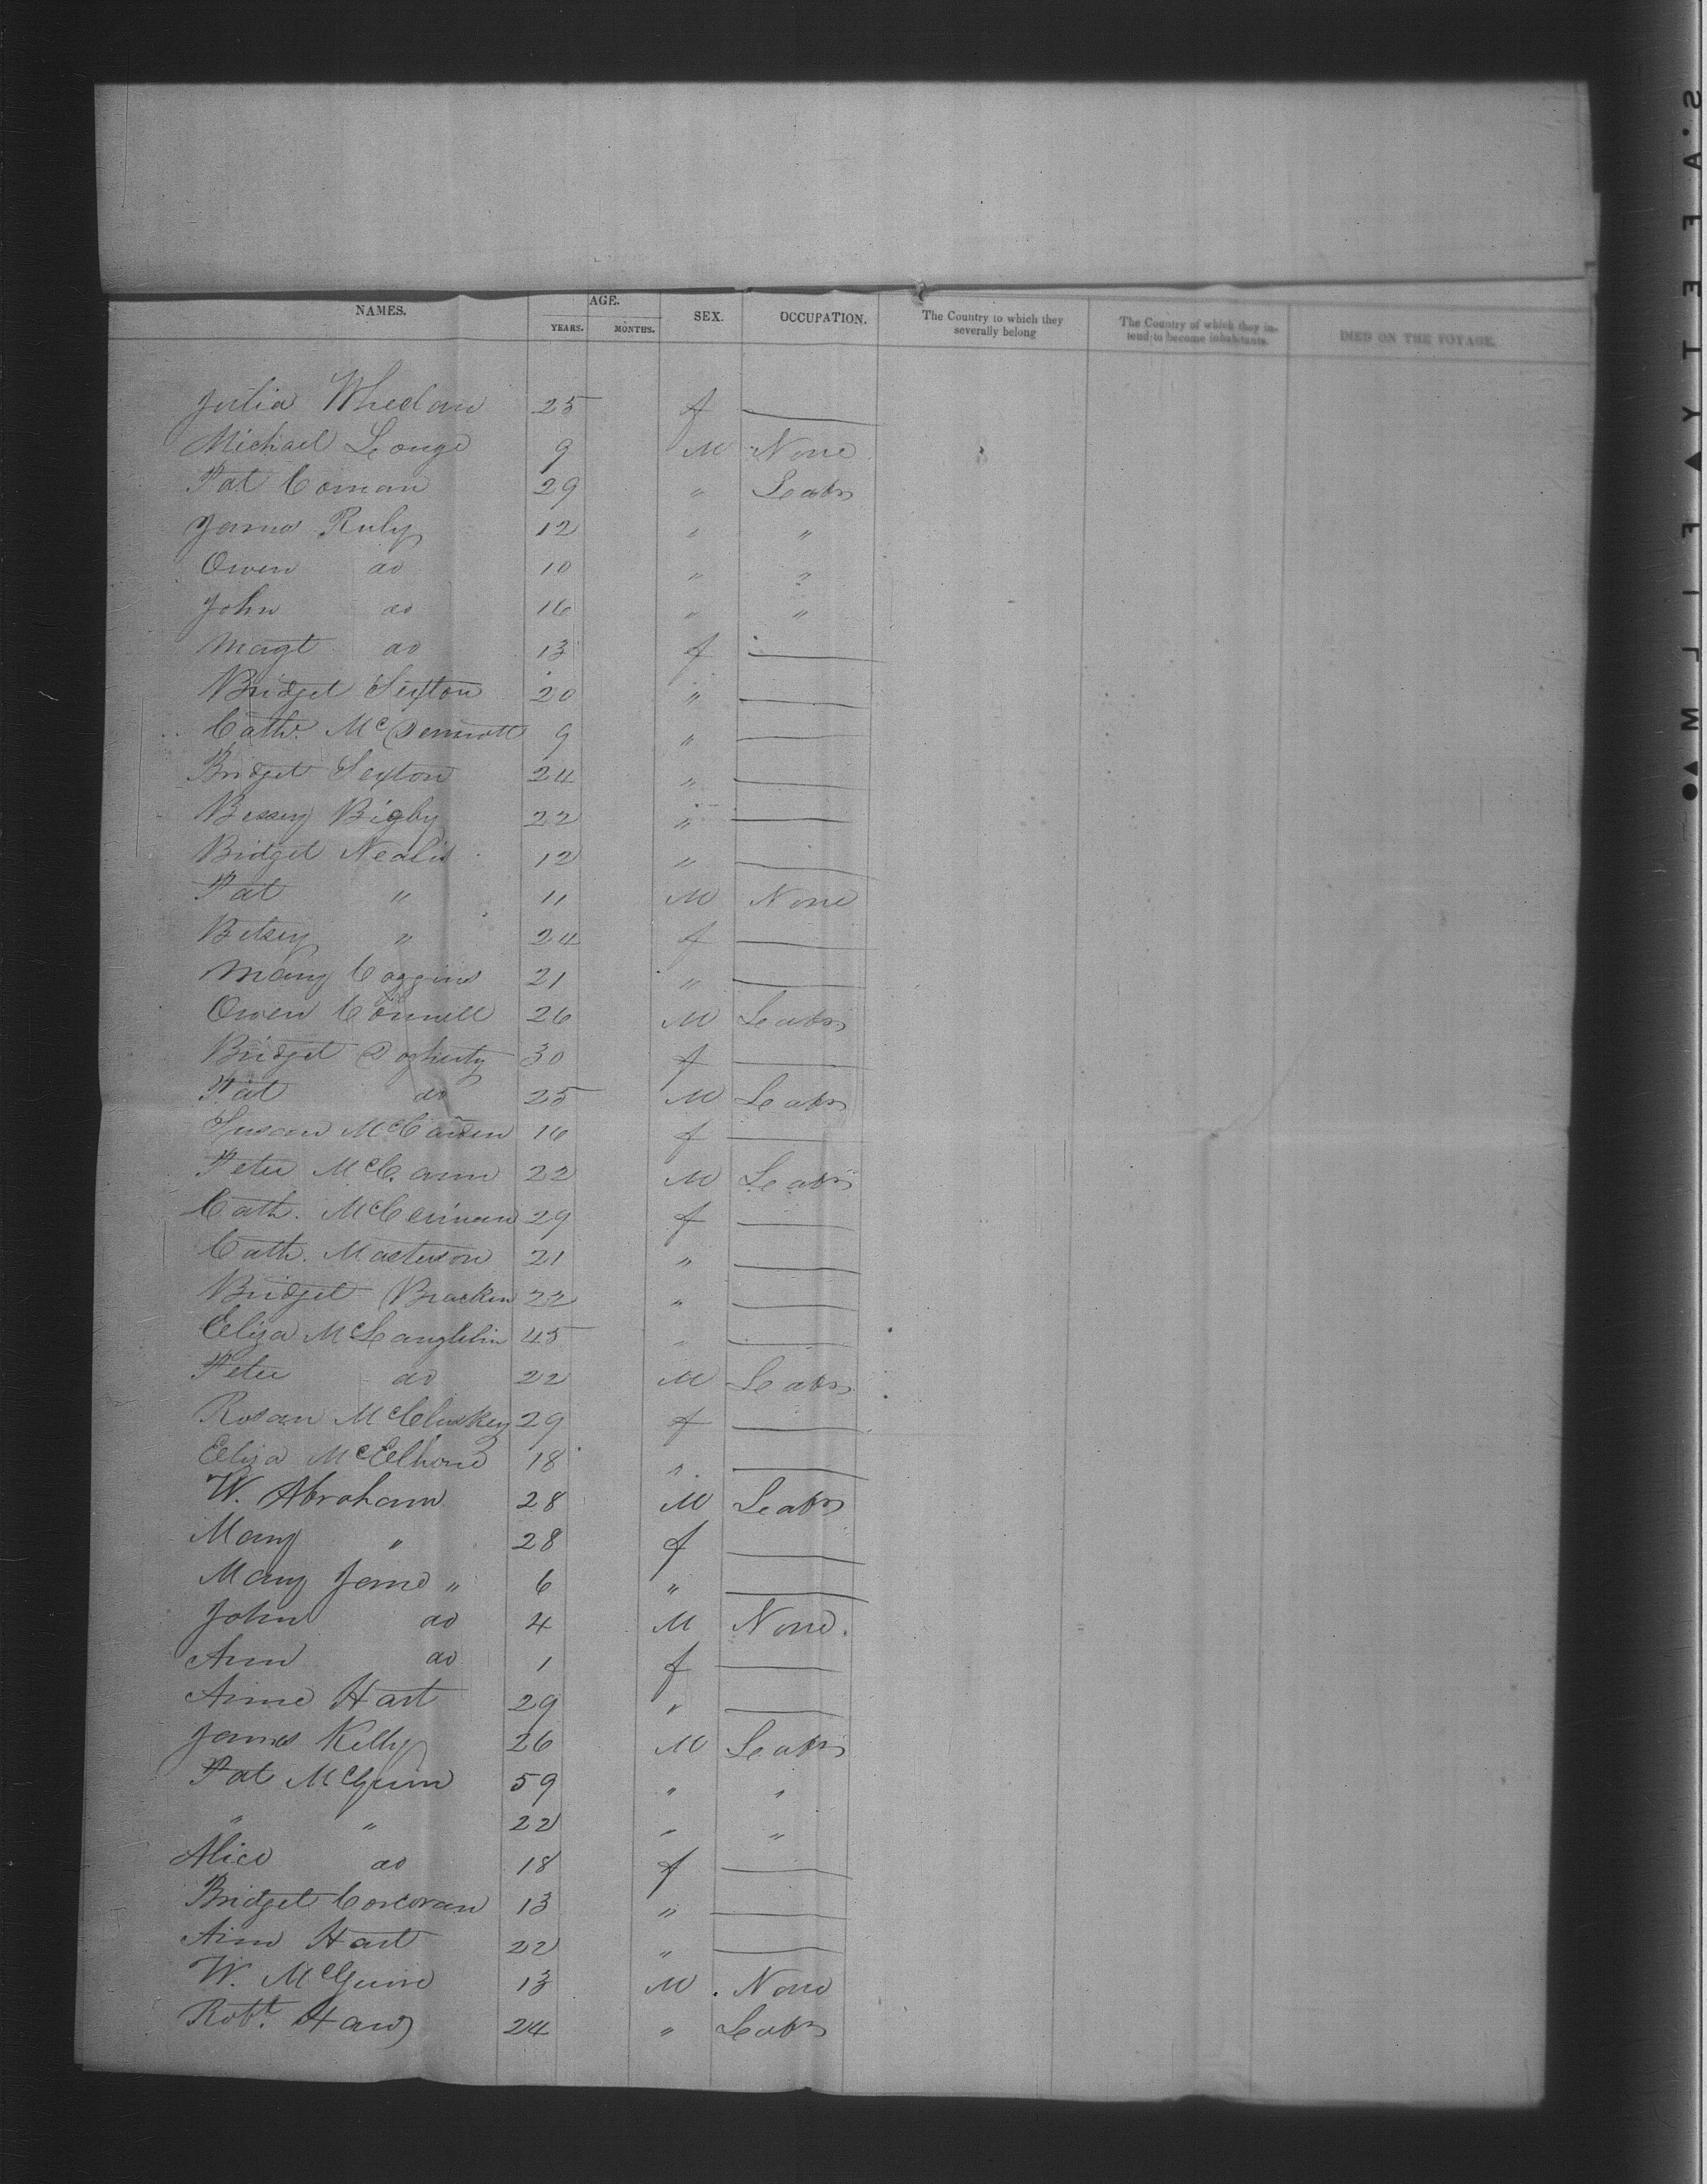 NAMES. AGE. SEX. OCCUPATION. The Country to which they severally belong The Country of which they intend to become inhabitants. DIED ON THE VOYAGE.
YEARS. MONTHS.
Julia Whelan 25 f
Michael Longe 9 M None
Pat Coman 29 " Labr
James Ruly 12 " "
Owen do 10 " "
John do 16 " "
Magt do 13 f
Bridget Sexton 20 "
Cath. McDermott 9 "
Bridget Sexton 24 "
Bessey Bigby 22 "
Bridget Nealis 12 "
Pat " 11 M None
Betsey " 24 f
Mary Coggins 21 "
Owen Connell 26 M Labr
Bridget Dogherty 30 f
Pat do 25 M Labr
Susan 16 f
Peter McCann 22 M Labr
Cath. 29 f
Cath. Masterson 21 "
Bridget Bracken 22 "
Eliza McLaughlin 45 "
Peter do 22 M Labr
Rosan McCluskey 29 f
Eliza McElhone 18 "
W. Abraham 28 M Labr
Mary " 28 f
Mary Jane " 6 "
John do 4 M None.
Ann do 1 f
Anne Hart 29 "
James Kelly 26 M Labr
Pat McGuin 59 " "
" " 22 " "
Alice do 18 f
Bridget Corcoran 13 "
Ann Hart 22 "
W. McGuire 13 M None
Robt. Haw 24 " Labr